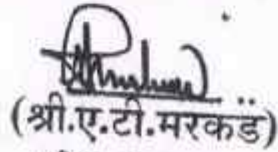 (श्री.ए.टी.मरकडे)